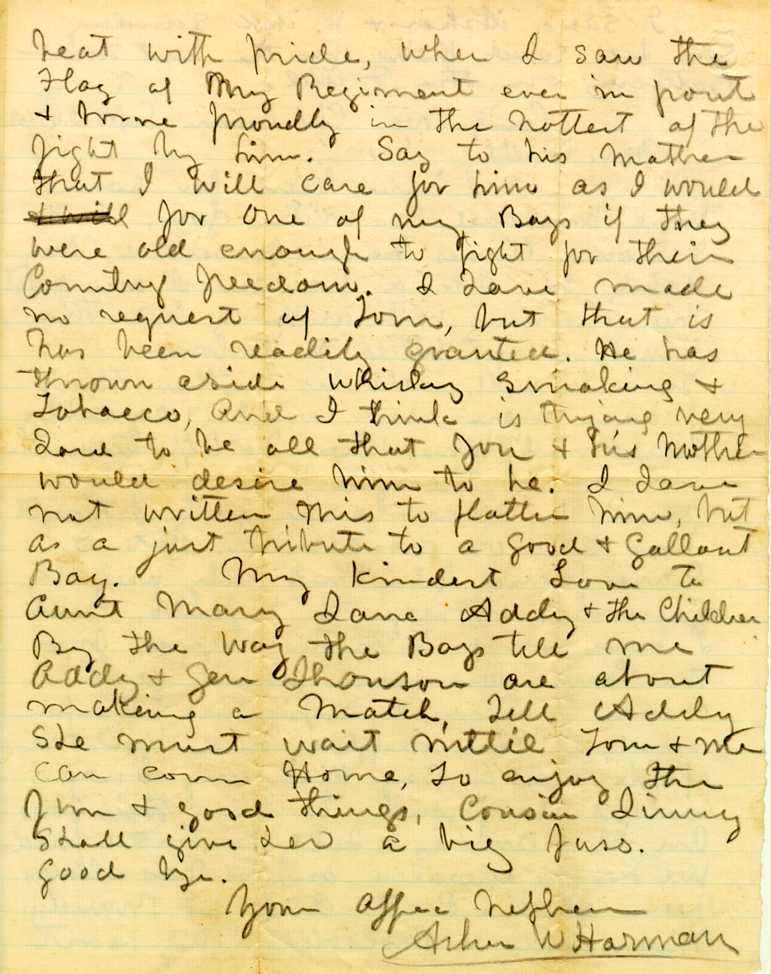 beat with pride, when I saw the
Flag of My Regiment ever in front
& borne proudly in the hottest of the
fight by him. Say to his Mother
that I will care for him as I would
for one of my Boys if they
were old enough to fight for their
Country freedom. I have made
no request of Tom, but that is
has been readily granted. He has
thrown aside whiskey Smoking &
Tobacco, And I think is trying very
hard to be all that you & his Mother
would desire him to be. I have
not written this to flatter him, but
as a just tribute to a good & Gallant
Boy. My kindest Love to
Aunt Mary Jane Addy & the Children
By the way the Boys tell me
Addy & Gen Jhonson are about
making a Match, Tell Addy
She must wait until Tom & me
can come Home, to enjoy the
fun & good things, Cousin
Shall give her a big fuss.
good bye.
Your Affec Nephew
Asher W Harman